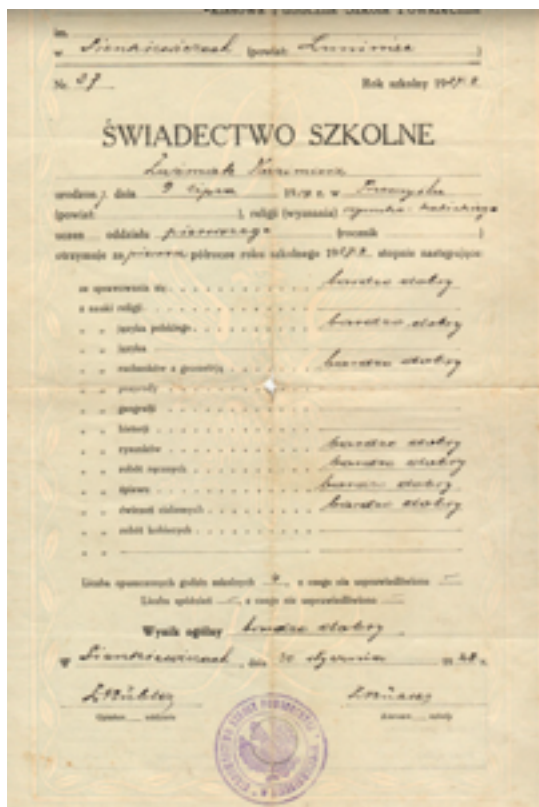 im.
w Sienkiewiczach (powiat: Łuniniec )
Nr. 27 Rok szkolny 1927/8
ŚWIADECTWO SZKOLNE
Kazimierz
urodzony dnia 9 lipca 19 r. w Przemyślu
(powiat: ), religji (wyznania) rzymsko-katolickiego
uczeń oddziału pierwszego (rocznik )
otrzymuje za pierwsze półrocze roku szkolnego 1927/8 stopnie następujące:
ze sprawowania się bardzo dobry
z nauki religji
" " języka polskiego bardzo dobry
" " języka
" " rachunków z geometrją bardzo dobry
" " przyrody
" " geografji
" " historji
" " rysunków bardzo dobry
" " robót ręcznych bardzo dobry
" " śpiewu bardzo dobry
" " ćwiczeń cielesnych bardzo dobry
" " robót kobiecych
" "
Liczba opuszczonych godzin szkolnych 4, z czego nie usprawiedliwiono –
Liczba spóźnień –, z czego nie usprawiedliwiono –
Wynik ogólny bardzo dobry
w Sienkiewiczach, dnia stycznia 1928 r.
Opiekun oddziału Kierown szkoły